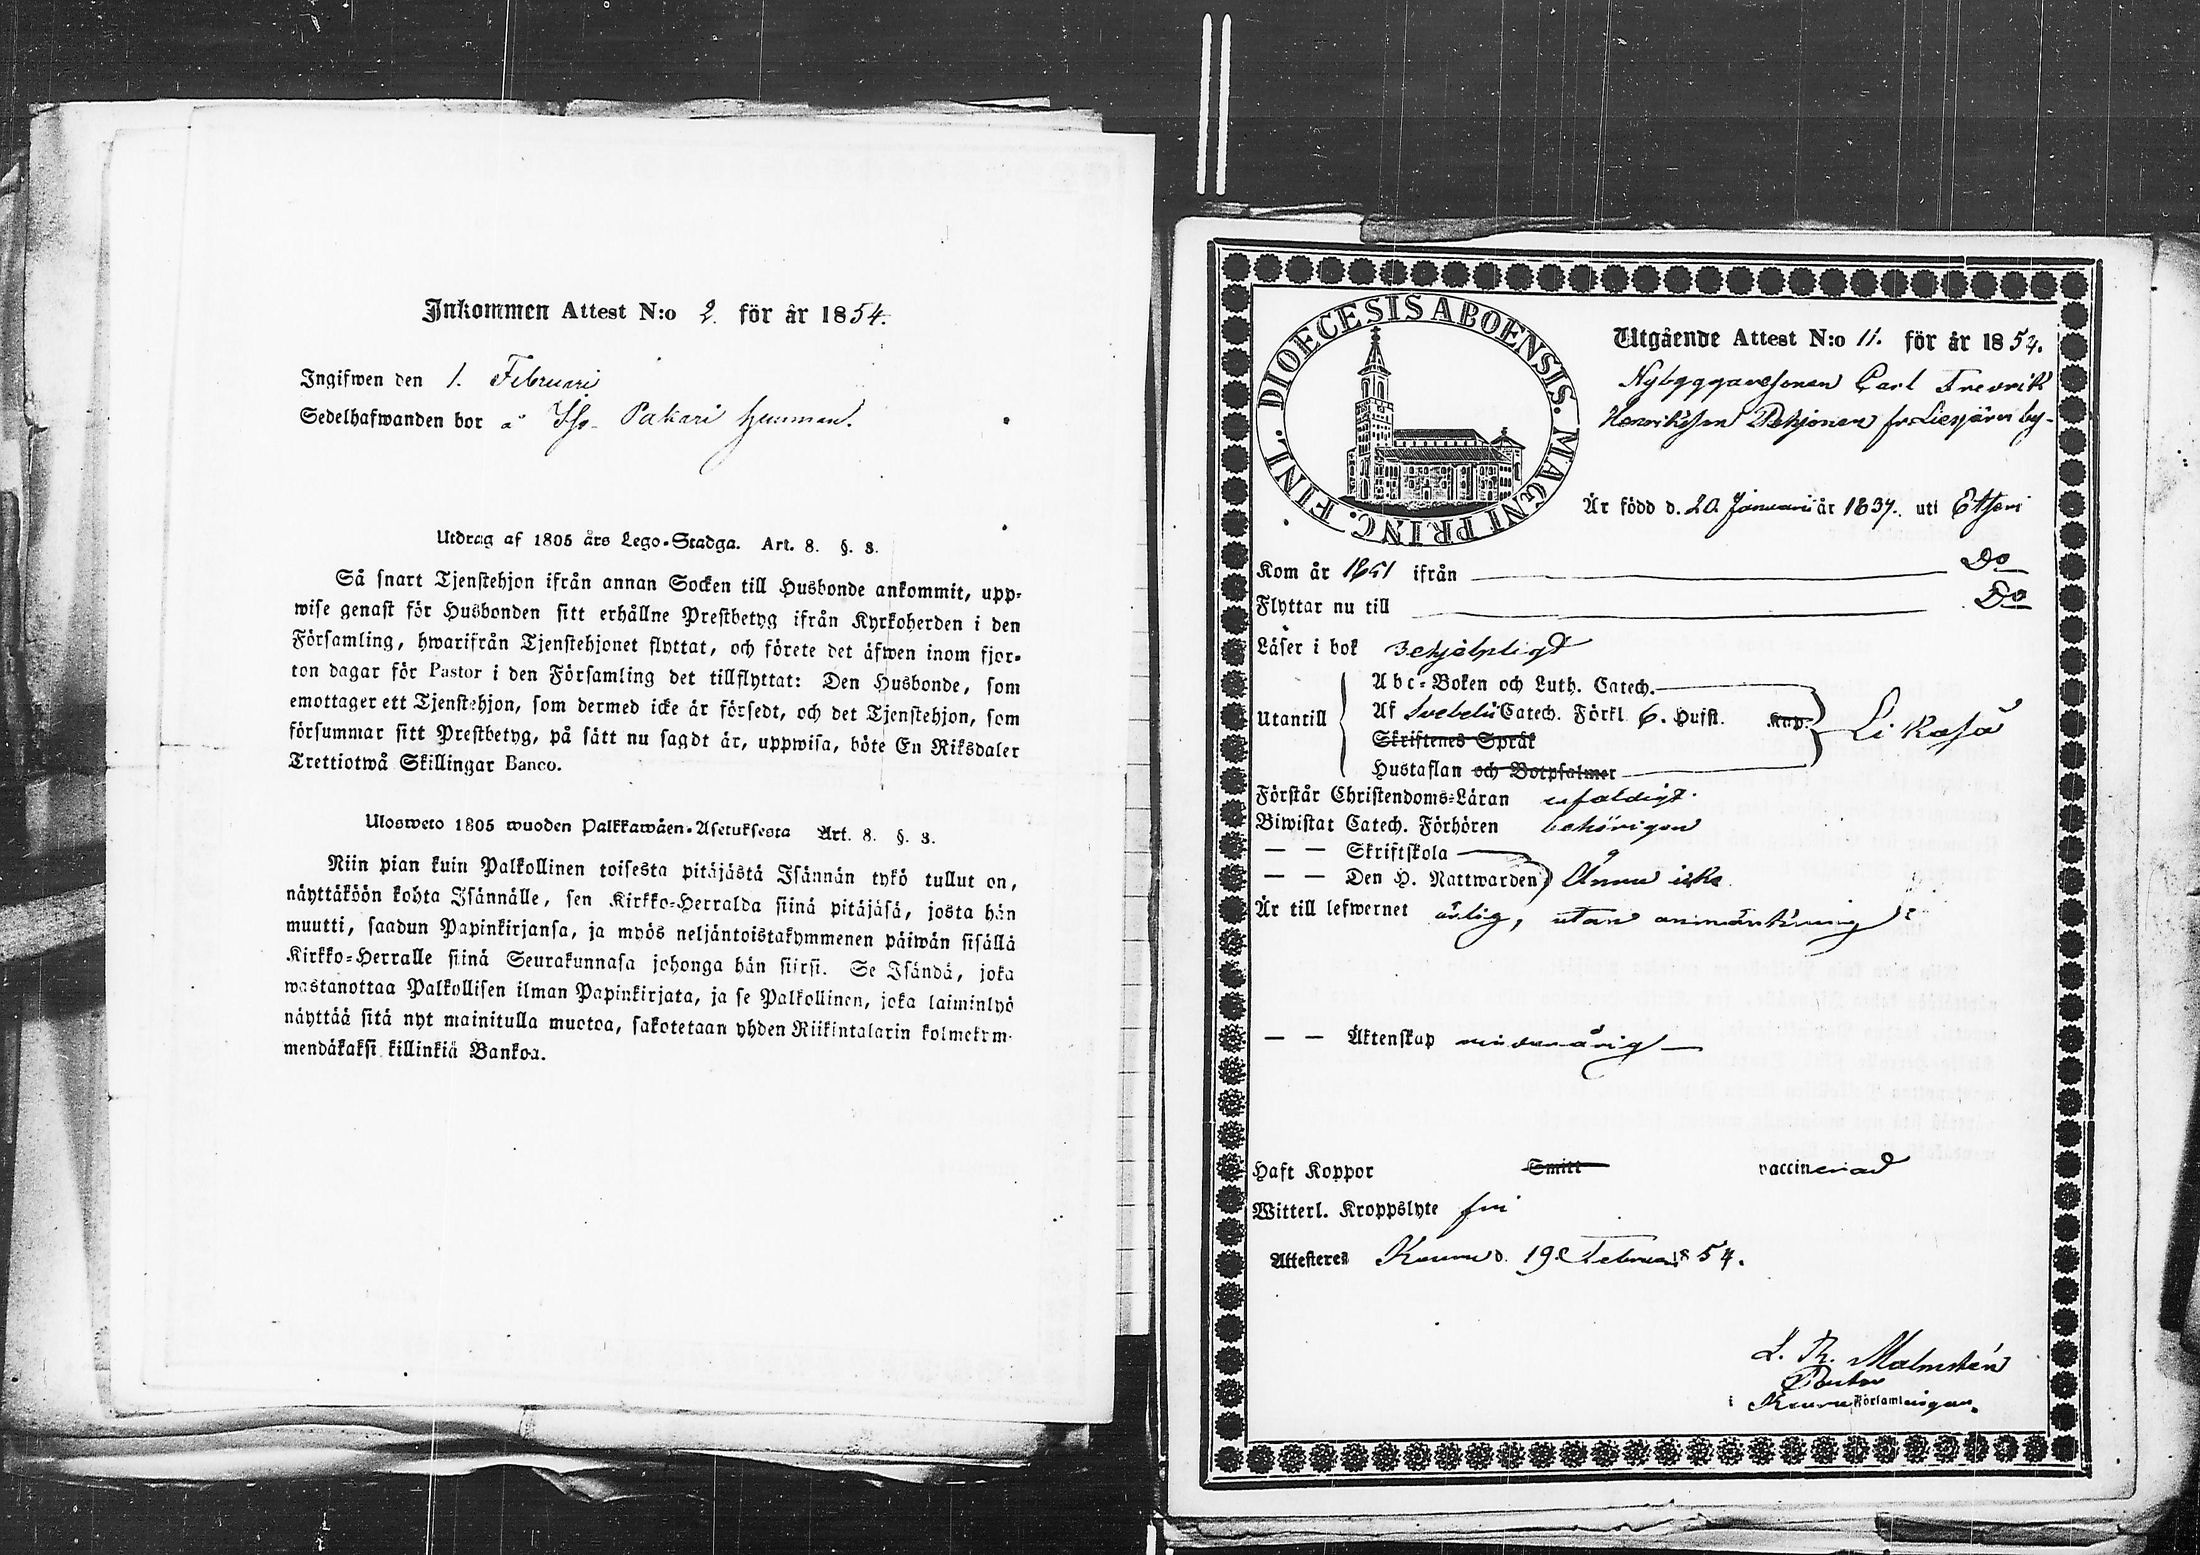 Inkommen Attest N:o 2. för år 1854.
Ingifwen den 1. Februari
Sedelhafwanden bor å Iso Pakari hemman.
Utdrag af 1805 års Lego-Stadga. Art. 8. §. 3.
Så snart Tjenstehjon ifrån annan Socken till Husbonde ankommit, upp-
wise genast för Husbonden sitt erhållne Prestbetyg ifrån Kyrkoherden i den
Församling, hwarifrån Tjenstehjonet flyttat, och förete det äfwen inom fjor-
ton dagar för Pastor i den Församling det tillflyttat: Den Husbonde, som
emottager ett Tjenstehjon, som dermed icke är försedt, och det Tjenstehjon, som
försummar sitt Prestbetyg, på sätt nu sagdt är, uppwisa, böte En Riksdaler
Trettiotwå Skillingar Banco.
Ulosweto 1805 wuoden Palkkawäen-Asetuksesta Art. 8. §. 3.
Niin pian kuin Palkollinen toisesta pitäjästä Isännän tykö tullut on,
näyttäköön kohta Isännälle, sen Kirkko-Herralda siinä pitäjäsä, josta hän
muutti, saadun Papinkirjansa, ja myös neljäntoistakymmenen päiwän sisällä
Kirkko-Herralle siinä Seurakunnasa johonga hän siirsi. Se Isändä, joka
wastanottaa Palkollisen ilman Papinkirjata, ja se Palkollinen, joka laiminlyö
näyttää sitä nyt mainitulla muotoa, sakotetaan yhden Riikintalarin kolmekym-
mendäkaksi killinkiä Bankoa.
DIOECESIS ABOENSIS. MAGNI PRINC. FINL.
Utgående Attest N:o 11. för år 1854.
Nybyggaresonen Carl Fredrik
Henriksson Pehjonen fr. Liesjärvi by.
Är född d. 20 Januarii år 1837. uti Etseri
Kom år 1851 ifrån Do
Flyttar nu till Do
Läser i bok behjelpligt
Abc-Boken och Luth. Catech.
Utantill Af Svebelii Catech. Förkl 6. Hufst. Kap. Likaså
Skriftenes Språk
Hustaflan och Botpsalmer
Förstår Christendoms-Läran enfaldigt.
Biwistat Catech. Förhören behörigen
— — Skriftskola
— — Den H. Nattwarden Ännu icke
Är till lefwernet ärlig, utan anmärkning
— — Äktenskap minderårig
Haft Koppor Smitt vaccinerad
Witterl. Kroppslyte fri
Attesteres Keuru d. 19 Februari 1854.
L. Th. Malmstén
Pastor
i Keuru Församlingar.